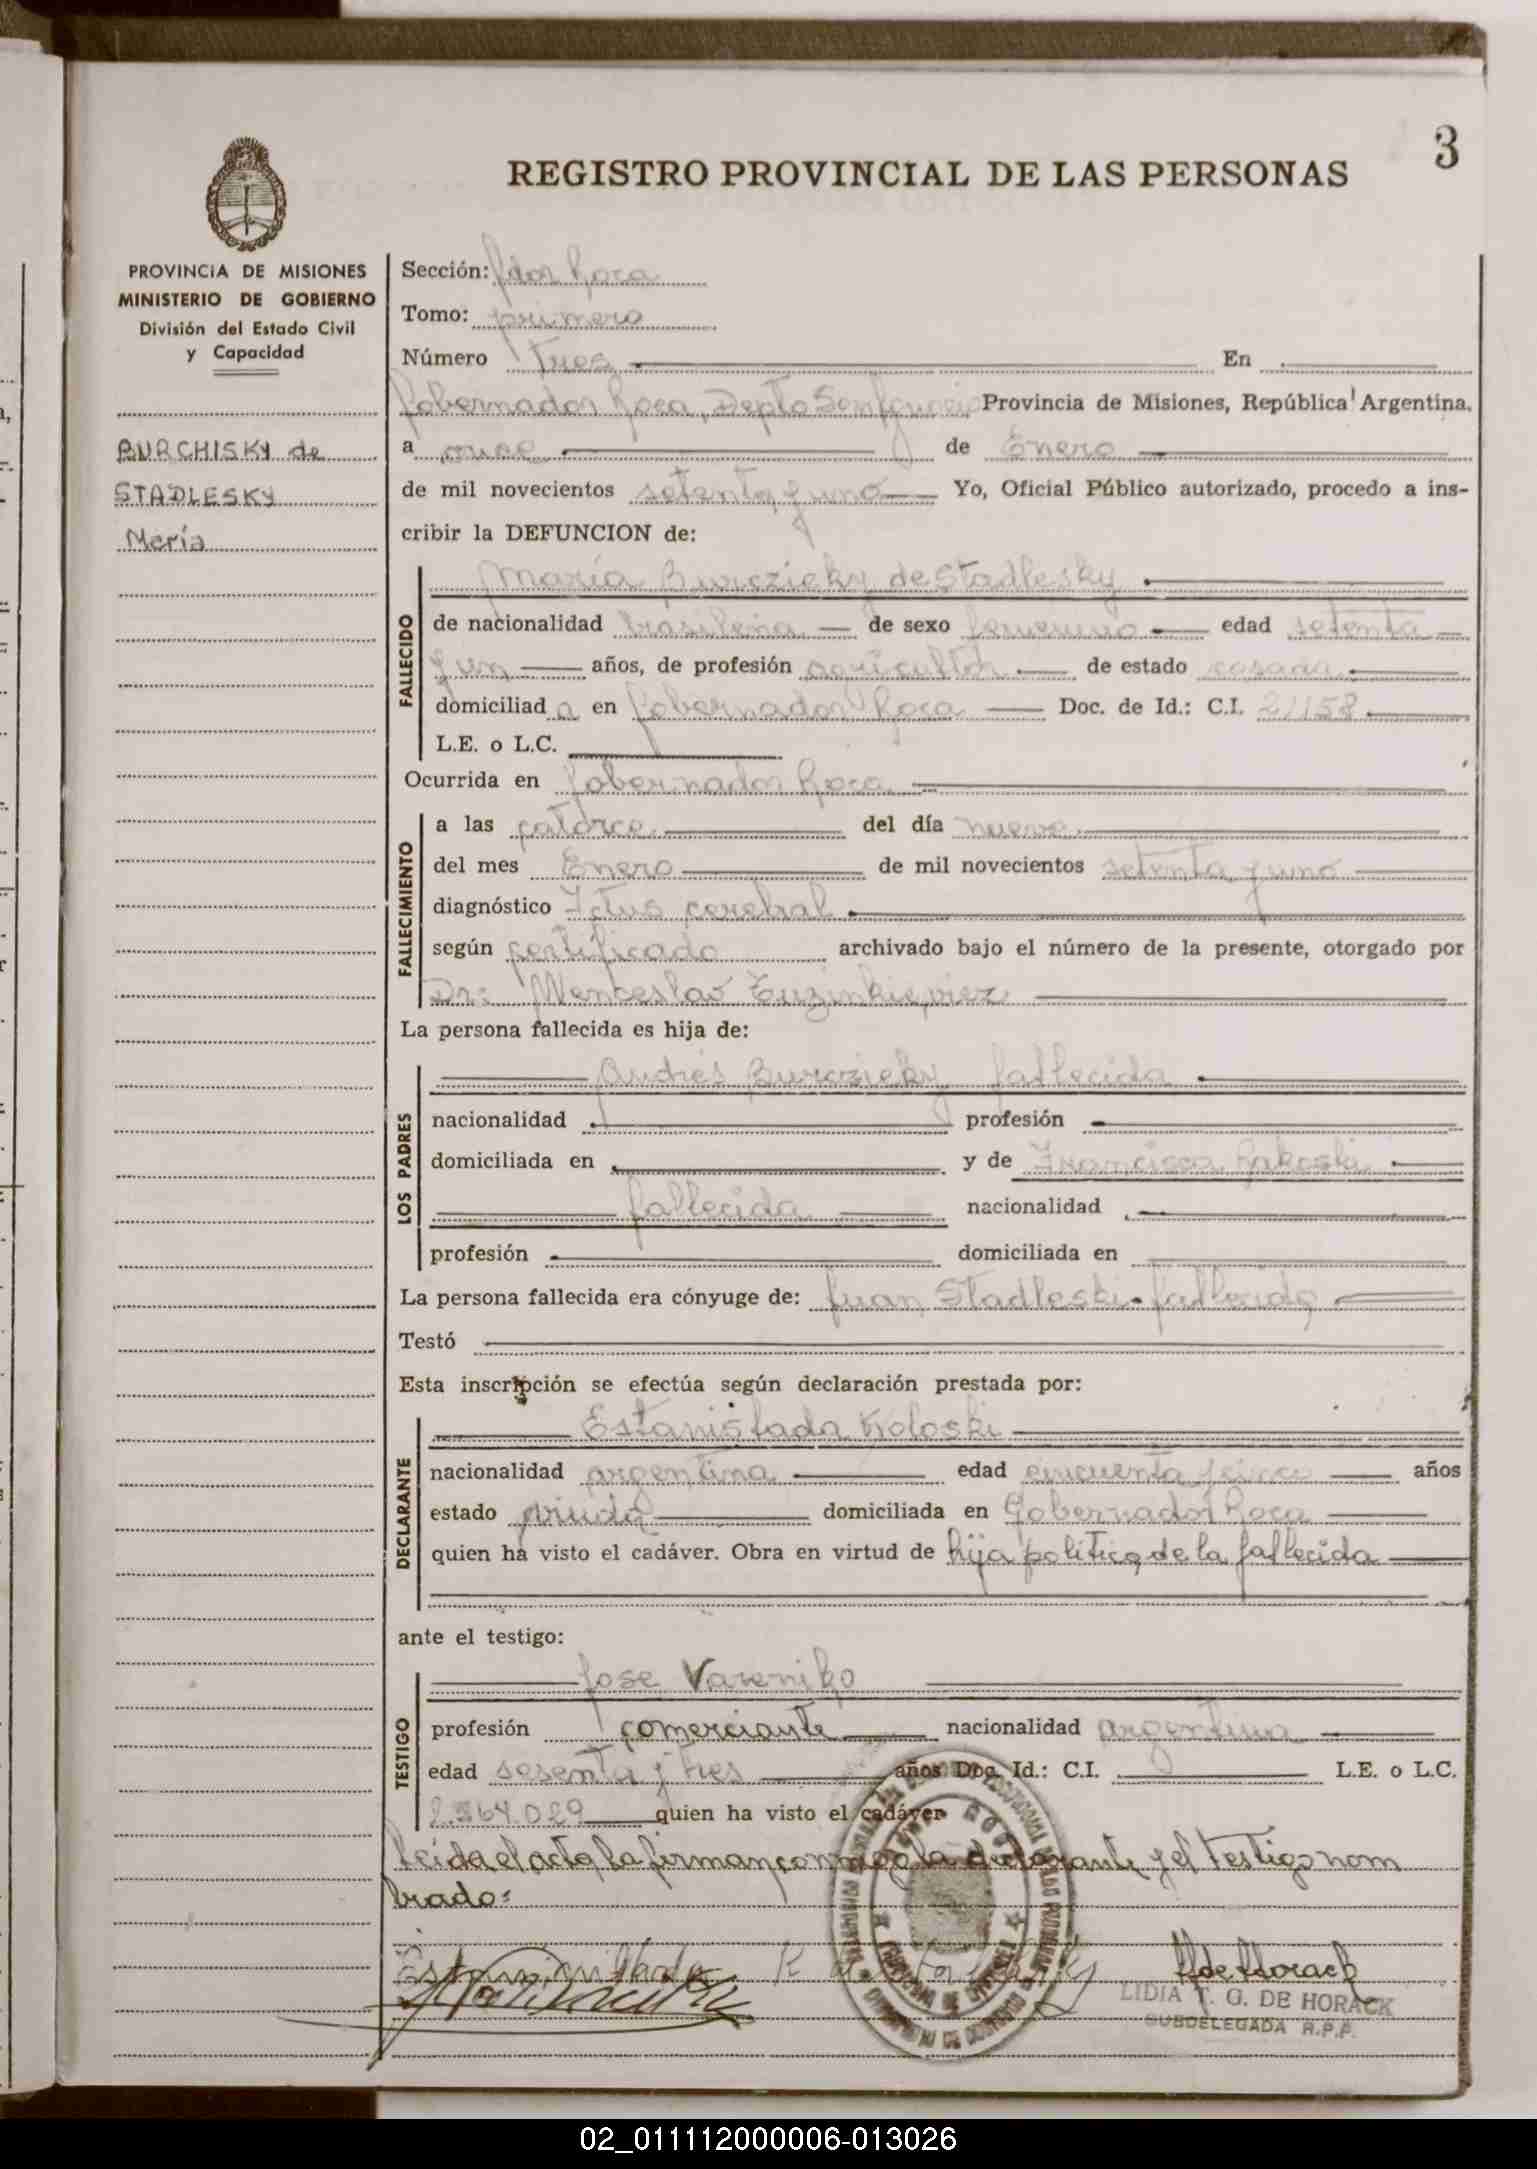 3
REGISTRO PROVINCIAL DE LAS PERSONAS
PROVINCIA DE MISIONES
MINISTERIO DE GOBIERNO
División del Estado Civil
y Capacidad
BURCHISKY de
STADLESKY
María
Sección: Gdor Roca
Tomo: primero
Número tres En
Gobernador Roca, Depto San Ignacio Provincia de Misiones, República Argentina.
a once de Enero
de mil novecientos setenta y uno Yo, Oficial Público autorizado, procedo a ins-
cribir la DEFUNCION de:
María Burczieky de Stadlesky
FALLECIDO
de nacionalidad brasileña de sexo femenino edad setenta
y un años, de profesión agricultor de estado casada
domiciliad a en Gobernador Roca Doc. de Id.: C.I. 21158
L.E. o L.C.
Ocurrida en Gobernador Roca
FALLECIMIENTO
a las catorce del día nueve
del mes Enero de mil novecientos setenta y uno
diagnóstico Ictus cerebral
según certificado archivado bajo el número de la presente, otorgado por
Dr: Wenceslao
La persona fallecida es hija de:
LOS PADRES
Andrés Burczieky fallecida
nacionalidad profesión
domiciliada en y de Francisca
fallecida nacionalidad
profesión domiciliada en
La persona fallecida era cónyuge de: Juan Stadleski-fallecido
Testó
Esta inscripción se efectúa según declaración prestada por:
DECLARANTE
Estanislada Koloski
nacionalidad argentina edad cincuenta y cinco años
estado viuda domiciliada en Gobernador Roca
quien ha visto el cadáver. Obra en virtud de hija política de la fallecida
ante el testigo:
TESTIGO
Jose Vareniko
profesión comerciante nacionalidad argentina
edad sesenta y tres años Doc. Id.: C.I. L.E. o L.C.
quien ha visto el cadáver
Leída el acta la firman conmigo la declarante y el testigo nom
brado:
LIDIA T. G. DE HORACK
SUBDELEGADA R.P.P.
02_011112000006-013026